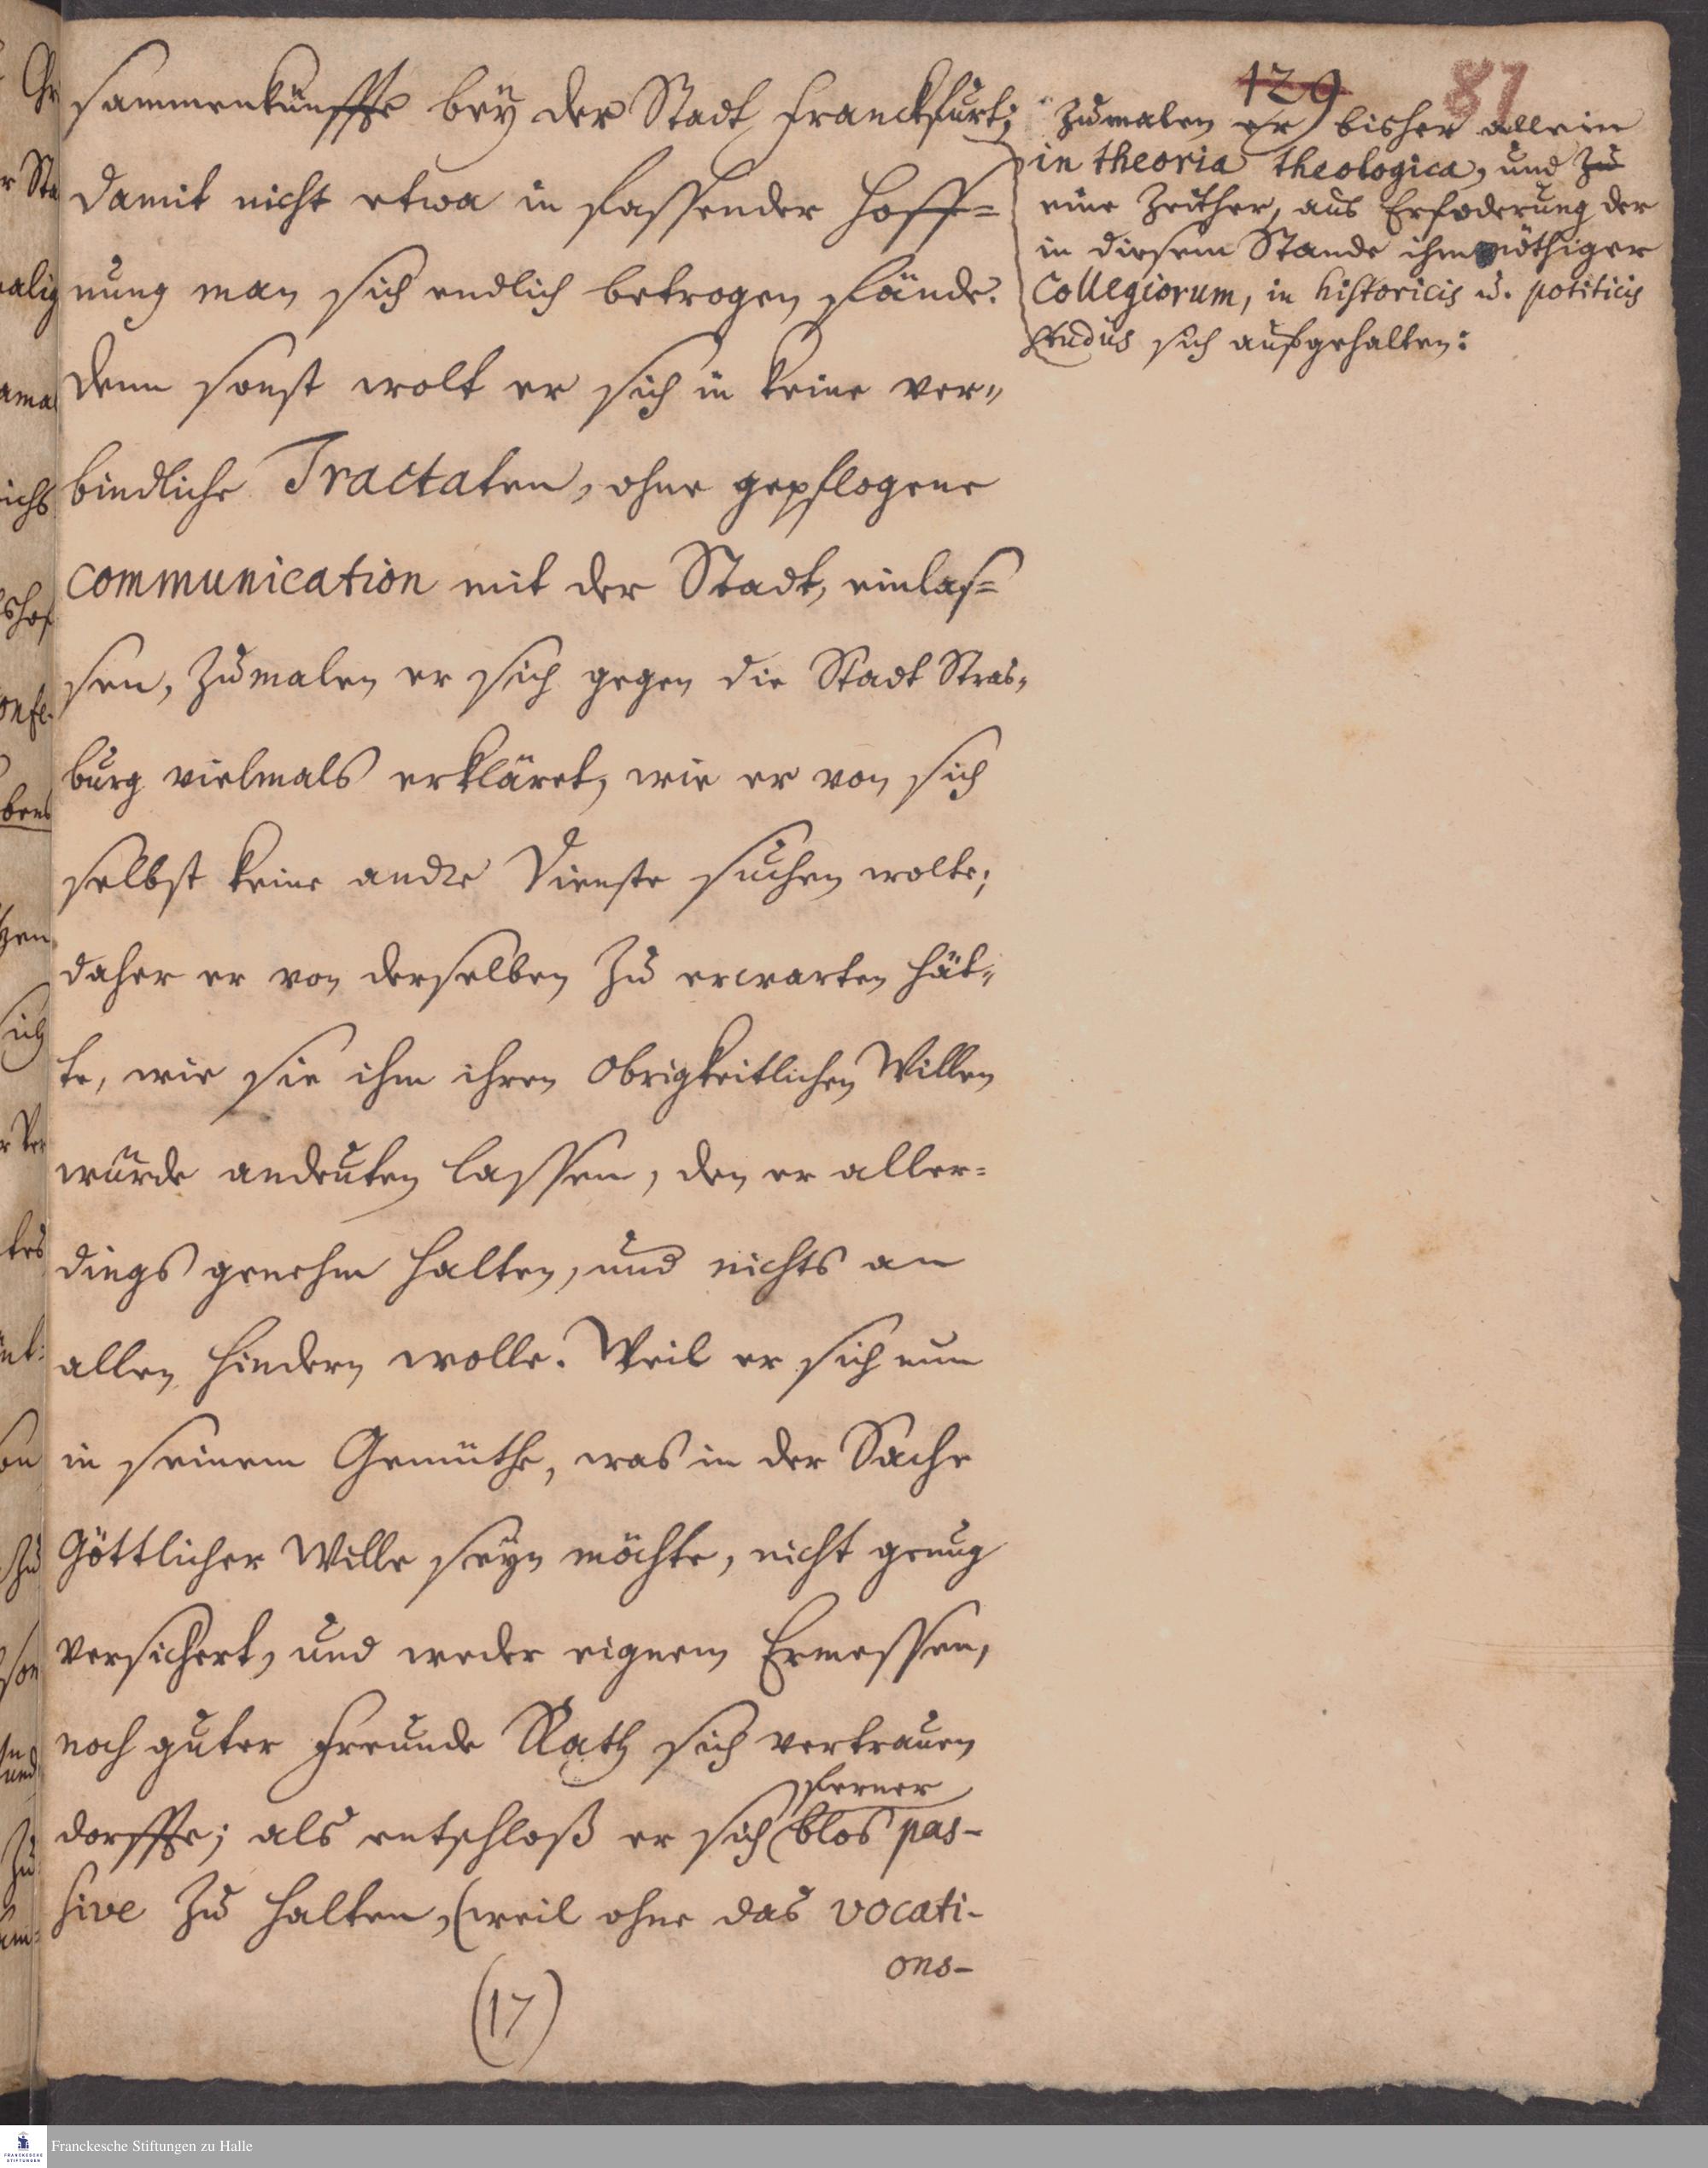 129
81
sammenkünffte bey der Stadt Franckfurt;
damit nicht etwa in fassender Hoff=
nung man sich endlich betrogen fände.
Denn sonst wolt er sich in keine ver„
bindliche Tractaten, ohne gepflogene
communication mit der Stadt, einlas=
sen, zumalen er sich gegen die Stadt Stras„
burg vielmals erkläret, wie er von sich
selbst keine andre Dienste suchen wolte;
daher er von derselben zu erwarten hät„
te, wie sie ihm ihren Obrigkeitlichen Willen
würde andeuten lassen, den er aller=
dings genehm halten, und nichts an
allen hindern wolle. Weil er sich nun
in seinem Gemüthe, was in der Sache
Göttlicher Wille seyn möchte, nicht genug
versichert, und weder eignem Ermessen,
noch guter Freunde Rath sich vertrauen
ferner
dorffte; als entschloß er sich blos pas-
sive zu halten, (weil ohne das vocati-
ons-
(17)
zumalen er bisher allein
in theoria theologica, und zu
eine Zeither, aus Erfoderung der
in diesem Stande ihm nöthiger
Collegiorum, in historicis u. politicis
studiis sich aufgehalten:
Franckesche Stiftungen zu Halle